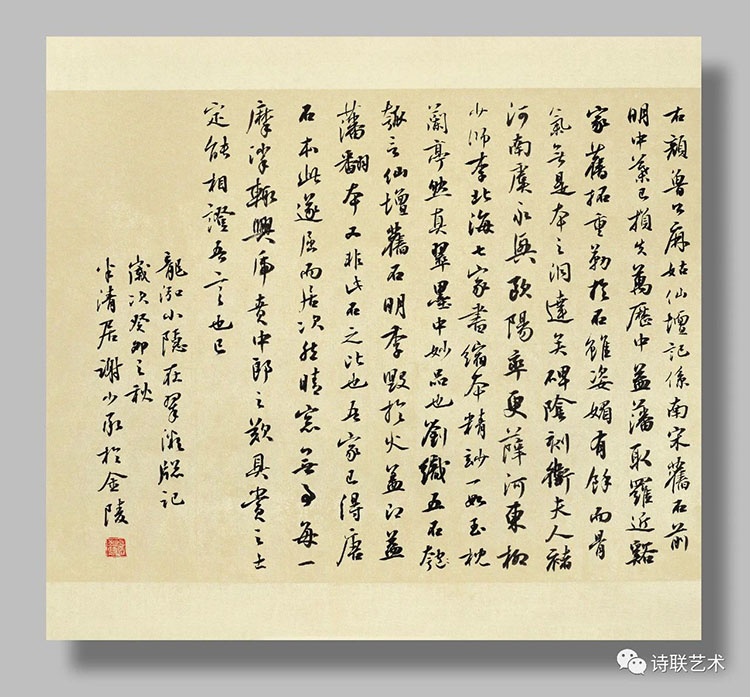 右顏魯公麻姑仙壇記係南宋舊石前
明中葉已損失萬歷中益藩取羅近谿
家舊拓重勒於石雖姿媚有餘而骨
氣無是本之洞達矣碑陰刻衛夫人褚
河南虞永興歐陽率更薛河東柳
少師李北海七家書縮本精妙一如玉枕
蘭亭然真翠墨中妙品也劉五石瓠
言仙壇舊石明季毀於火益即益
藩翻本又非此石之比也吾家已得唐
石本此遂屈而居次然晴窓無事每一
摩挲輒興虎賁中郎之歎具賞之士
定能相證吾言也已
龍泓小隱在翠牕記
歲次癸卯之秋
半清居謝少承於金陵
诗联艺术